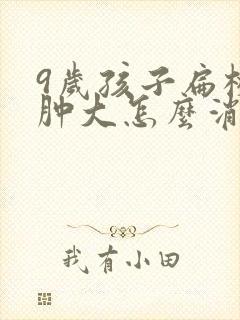 9歲孩子扁
肿大怎麼消
我有小田